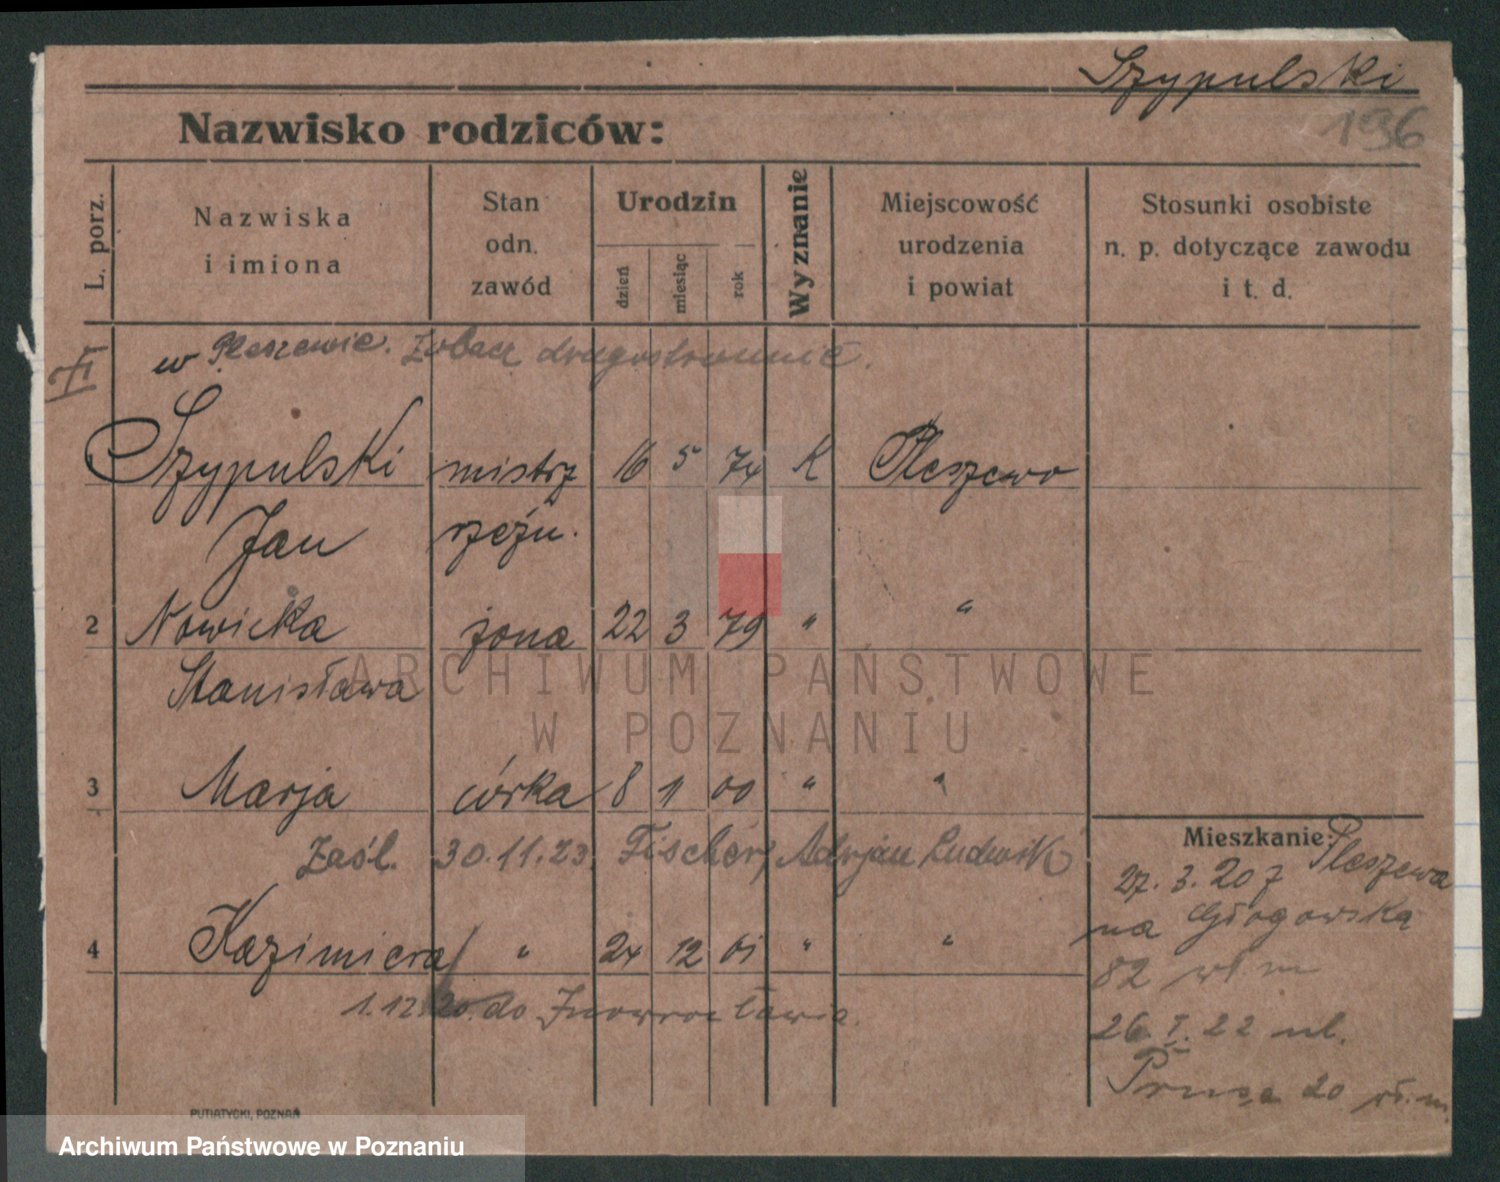 Szypulski
196
Nazwisko rodziców:
L. porz.
Nazwiska i imiona
Stan odn. zawód
Urodzin
dzień
miesiąc
rok
Wyznanie
Miejscowość urodzenia i powiat
Stosunki osobiste n. p. dotyczące zawodu i t. d.
II
w Pleszewie. Zobacz drugostronnie.
1 Szypulski mistrz 16 5 74 K Pleszewo
Jan rzeźn.
2 Nowicka żona 22 3 79 " "
Stanisława
3 Marja córka 8 11 00 " "
Zaśl. 30.11.23. Fischer, Adrjan Ludwik
4 Kazimiera " 24 12 01 " "
1.12.20. do Inowrocławia.
Mieszkanie:
27. 3. 20 z Pleszewa
na Głogowską
82 wł m
26. I. 22 ul.
Prusa 20 wł. m.
PUTIATYCKI, POZNAŃ
ARCHIWUM PAŃSTWOWE
W POZNANIU
Archiwum Państwowe w Poznaniu